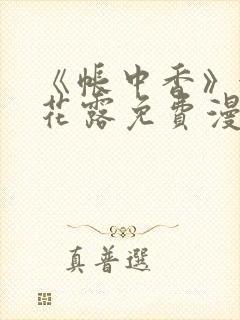 《帐中香》
花露免費漫
真普選